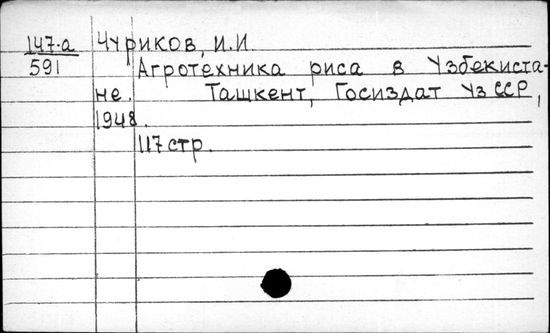 147-а Чуриков, И.И.
591 Агротехника риса в Узбекиста-
не. Ташкент, Госиздат УзССР,
1948.
117 стр.